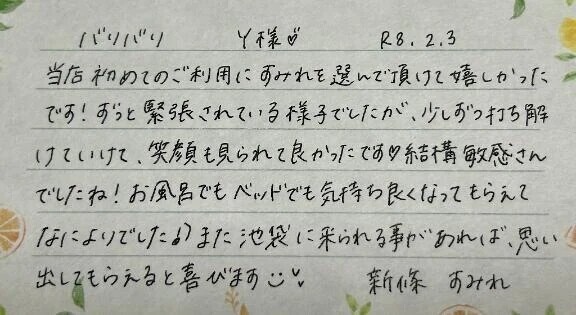 バリバリ Y様♡ R8.2.3
当店初めてのご利用にすみれを選んで頂けて嬉しかった
です！ずっと緊張されている様子でしたが、少しずつ打ち解
けていけて、笑顔も見られて良かったです♡結構敏感さん
でしたね！お風呂でもベッドでも気持ち良くなってもらえて
なによりでした♪また池袋に来られる事があれば、思い
出してもらえると喜びます☺♡ 新條 すみれ